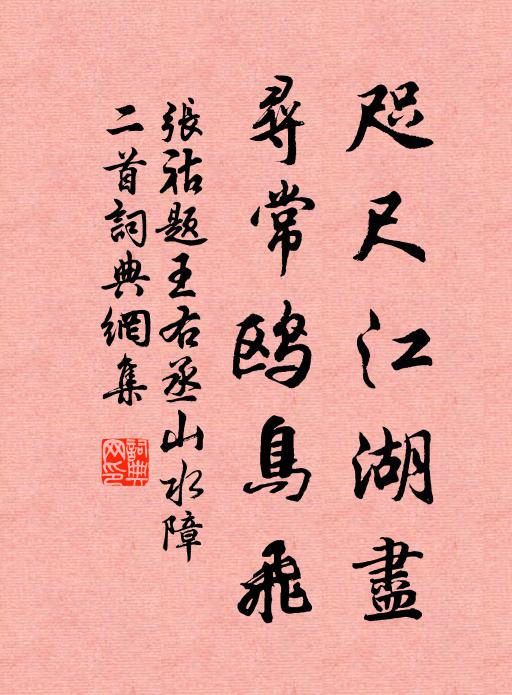 咫尺江湖盡
尋常鷗鳥飛
張祜題王右丞山水障
二首詞典網集
詞典网印